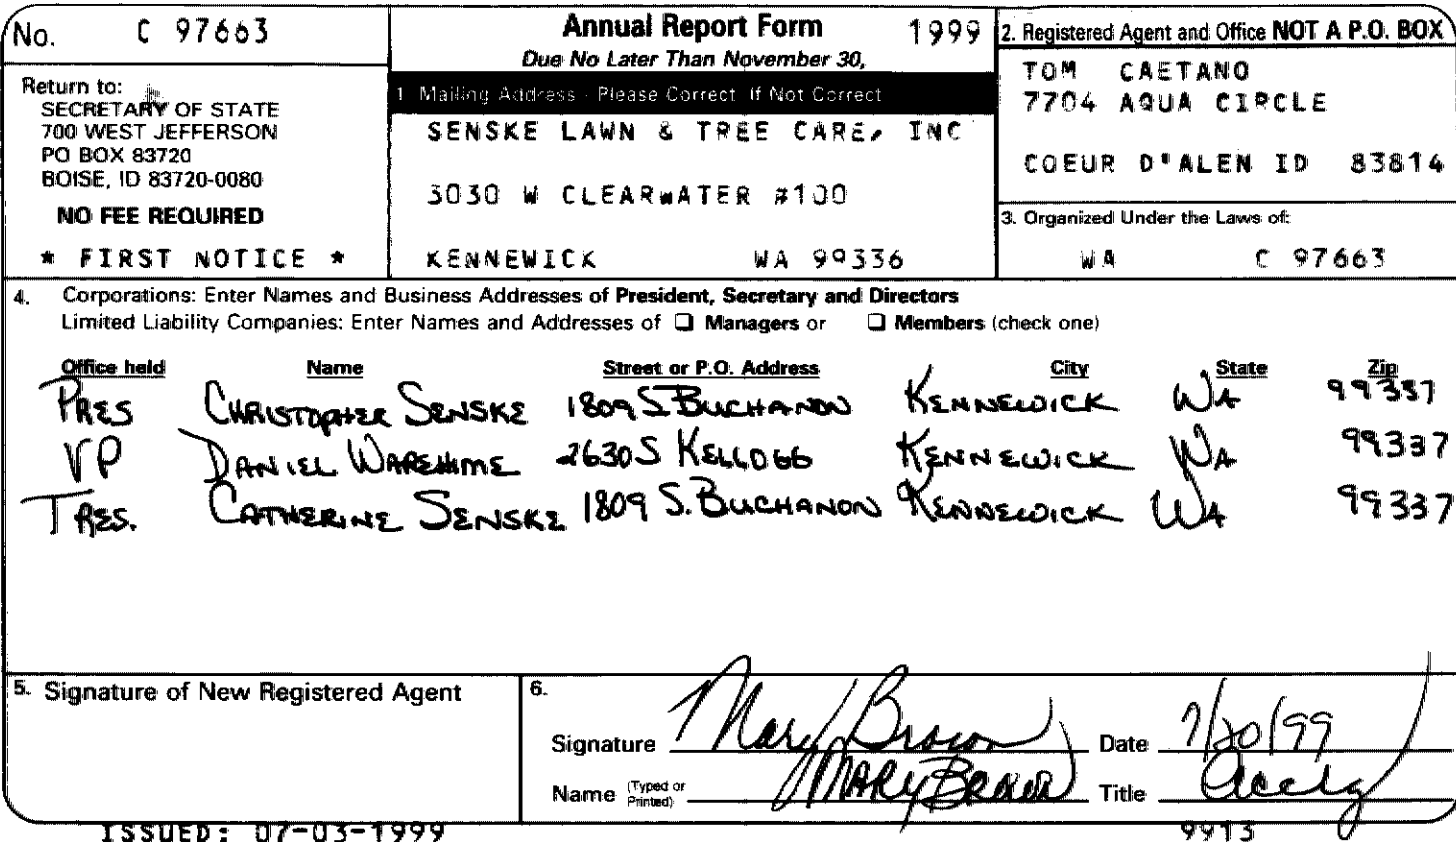 No. C 97663
Return to:
SECRETARY OF STATE
700 WEST JEFFERSON
PO BOX 83720
BOISE, ID 83720-0080
NO FEE REQUIRED
* FIRST NOTICE *
Annual Report Form 1999
Due No Later Than November 30,
1 Mailing Address - Please Correct If Not Correct
SENSKE LAWN & TREE CARE, INC
3030 W CLEARWATER #100
KENNEWICK WA 99336
2. Registered Agent and Office NOT A P.O. BOX
TOM CAETANO
7704 AQUA CIRCLE
COEUR D'ALEN ID 83814
3. Organized Under the Laws of:
WA C 97663
4. Corporations: Enter Names and Business Addresses of President, Secretary and Directors
Limited Liability Companies: Enter Names and Addresses of ❑ Managers or ❑ Members (check one)
Office held Name Street or P.O. Address City State Zip
PRES CHRISTOPHER SENSKE 1809 S. BUCHANON KENNEWICK WA 99337
VP DANIEL WAREHIME 2630 S KELLOGG KENNEWICK WA 99337
TRES. CATHERINE SENSKE 1809 S. BUCHANON KENNEWICK WA 99337
5. Signature of New Registered Agent
6.
Signature Mary Brown Date 7/20/99
Name (Typed or Printed) MARY BROWN Title Acctg
ISSUED: 07-03-1999 9913